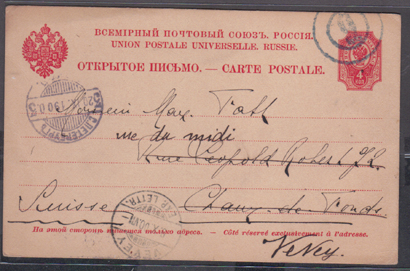 ВСЕМІРНЫЙ ПОЧТОВЫЙ СОЮЗЪ. РОССІЯ.
UNION POSTALE UNIVERSELLE. RUSSIE.
ОТКРЫТОЕ ПИСЬМО. — CARTE POSTALE.
Max.
rue du midi
Rue Léopold Robert
Suisse Chaux-de-Fonds
На этой сторонѣ пишется только адресъ. — Côté réservé exclusivement à l'adresse.
Vevey.
VEVEY